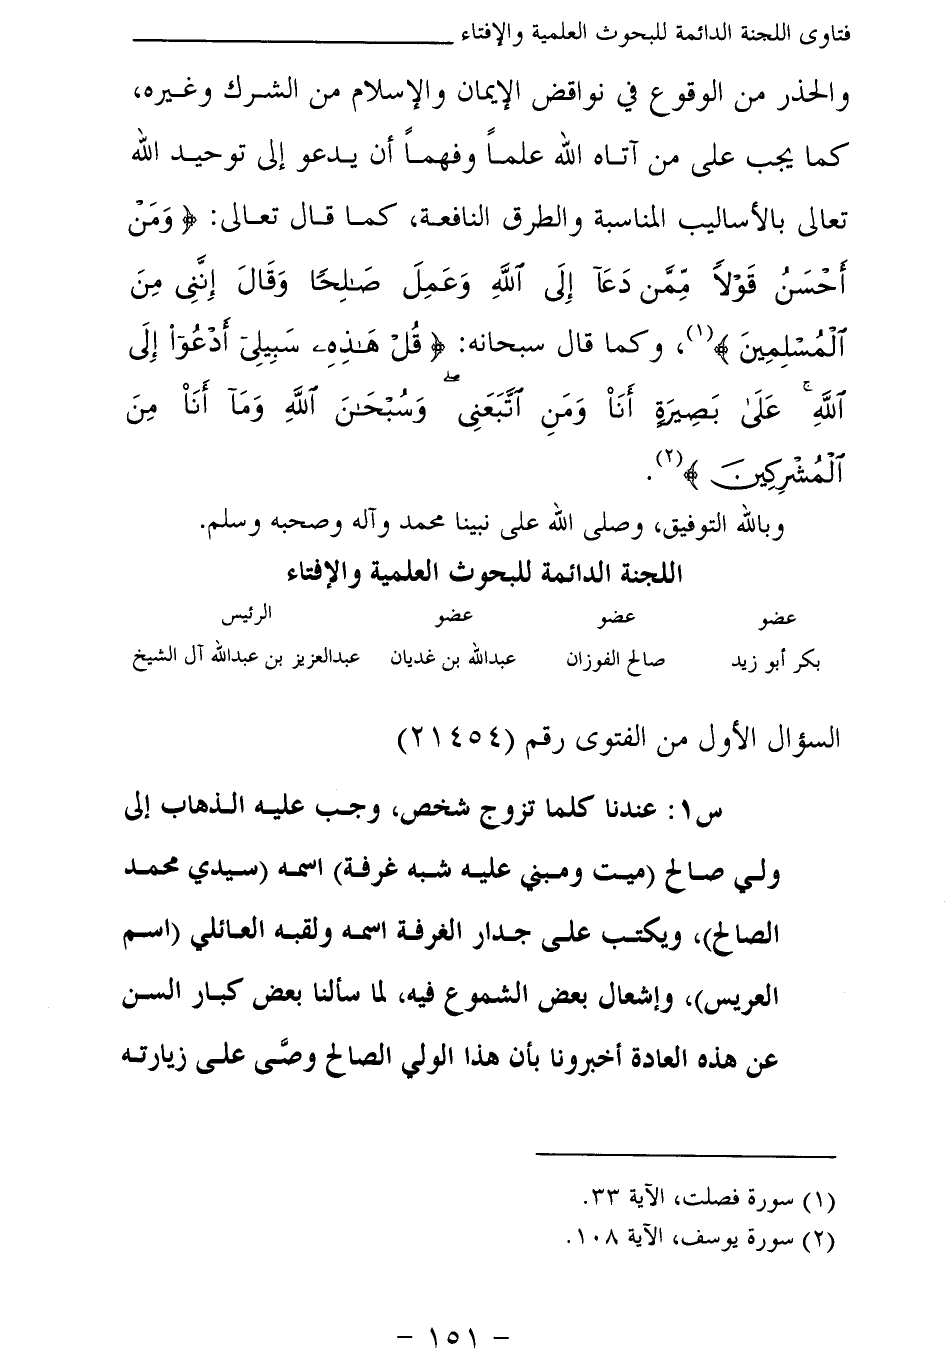 فتاوى اللجنة الدائمة للبحوث العلمية والإفتاء
والحذر من الوقوع في نواقض الإيمان والإسلام من الشرك وغيره،
كما يجب على من آتاه الله علماً وفهماً أن يدعو إلى توحيد الله
تعالى بالأساليب المناسبة والطرق النافعة، كما قال تعالى: ﴿ وَمَنْ
أَحْسَنُ قَوْلًا مِّمَّن دَعَآ إِلَى ٱللَّهِ وَعَمِلَ صَٰلِحًا وَقَالَ إِنَّنِى مِنَ
ٱلْمُسْلِمِينَ ﴾(١)، وكما قال سبحانه: ﴿ قُلْ هَٰذِهِۦ سَبِيلِىٓ أَدْعُوٓا۟ إِلَى
ٱللَّهِ ۚ عَلَىٰ بَصِيرَةٍ أَنَا۠ وَمَنِ ٱتَّبَعَنِى ۖ وَسُبْحَٰنَ ٱللَّهِ وَمَآ أَنَا۠ مِنَ
ٱلْمُشْرِكِينَ ﴾(٢).
وبالله التوفيق، وصلى الله على نبينا محمد وآله وصحبه وسلم.
اللجنة الدائمة للبحوث العلمية والإفتاء
عضو عضو عضو الرئيس
بكر أبو زيد صالح الفوزان عبدالله بن غديان عبدالعزيز بن عبدالله آل الشيخ
السؤال الأول من الفتوى رقم (٢١٤٥٤)
س١: عندنا كلما تزوج شخص، وجب عليه الذهاب إلى
ولي صالح (ميت ومبني عليه شبه غرفة) اسمه (سيدي محمد
الصالح)، ويكتب على جدار الغرفة اسمه ولقبه العائلي (اسم
العريس)، وإشعال بعض الشموع فيه، لما سألنا بعض كبار السن
عن هذه العادة أخبرونا بأن هذا الولي الصالح وصَّى على زيارته
(١) سورة فصلت، الآية ٣٣.
(٢) سورة يوسف، الآية ١٠٨.
- ١٥١ -